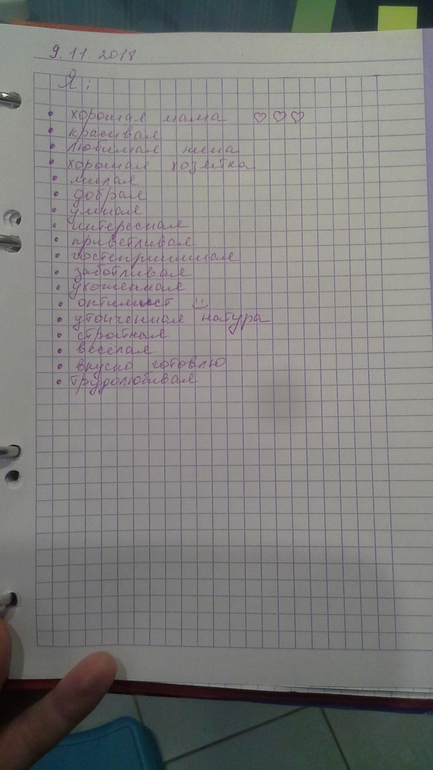 9.11.2018
Я:
• хорошая мама ♡♡♡
• красивая
• любимая жена
• хорошая хозяйка
• милая
• добрая
• умная
• интересная
• приветливая
• гостеприимная
• заботливая
• ухоженная
• оптимист
• утонченная натура
• стройная
• веселая
• вкусно готовлю
• трудолюбивая